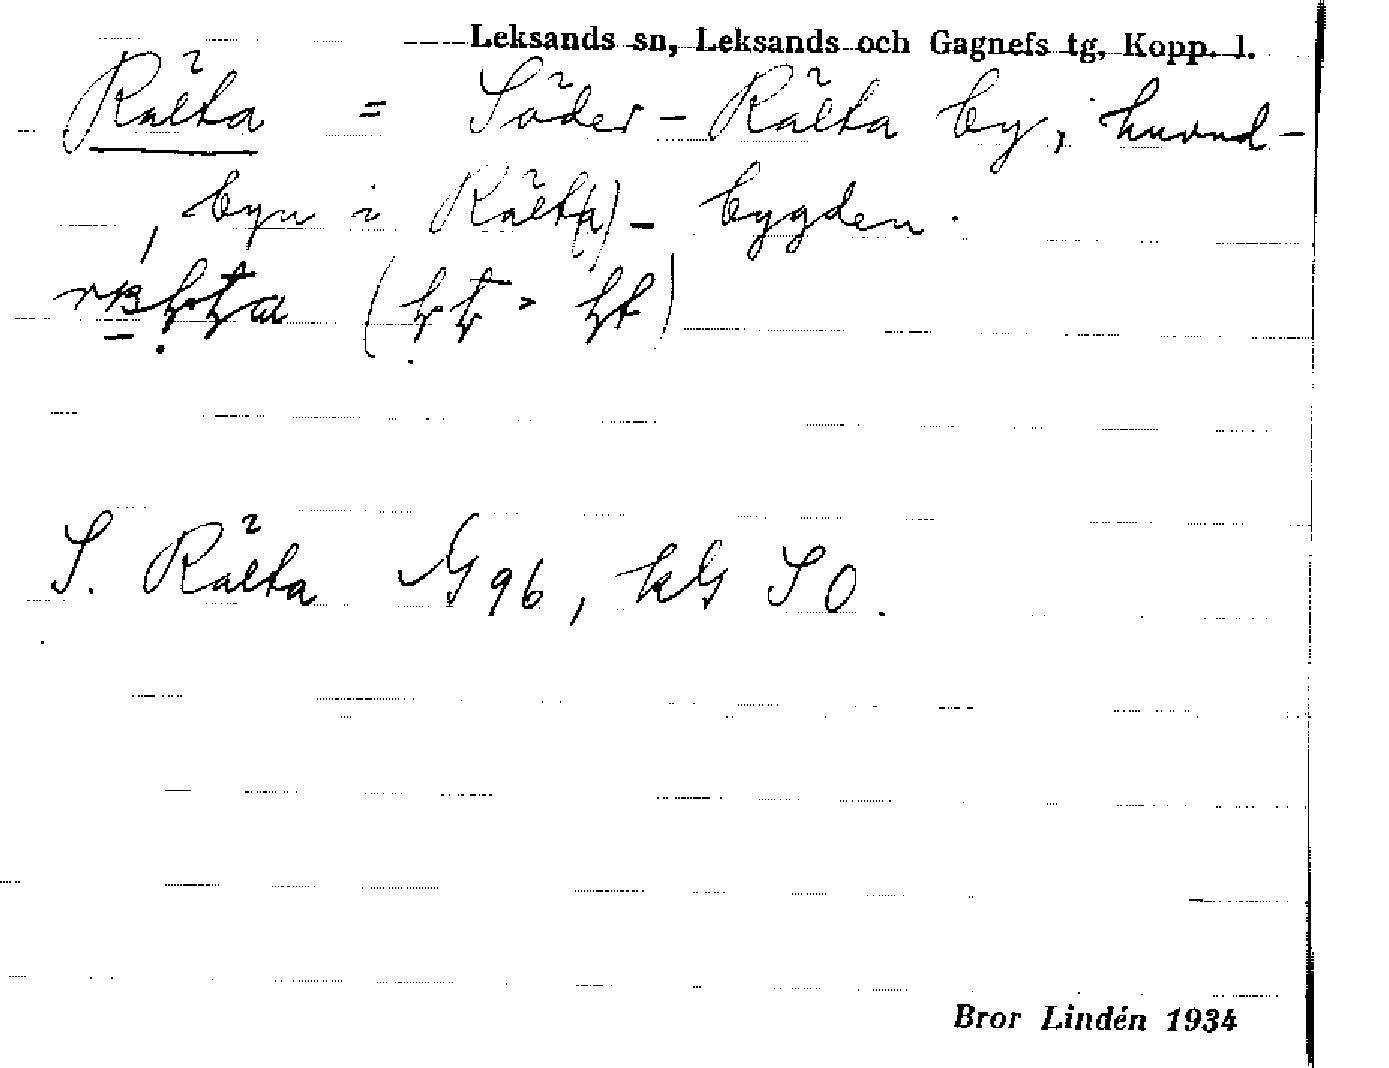 Leksands sn, Leksands och Gagnefs tg, Kopp. l.
Rälta = Söder-Rälta by, huvud-
byn i Rält(a)-bygden.
S. Rälta G 96, kG SO.
Bror Lindén 1934